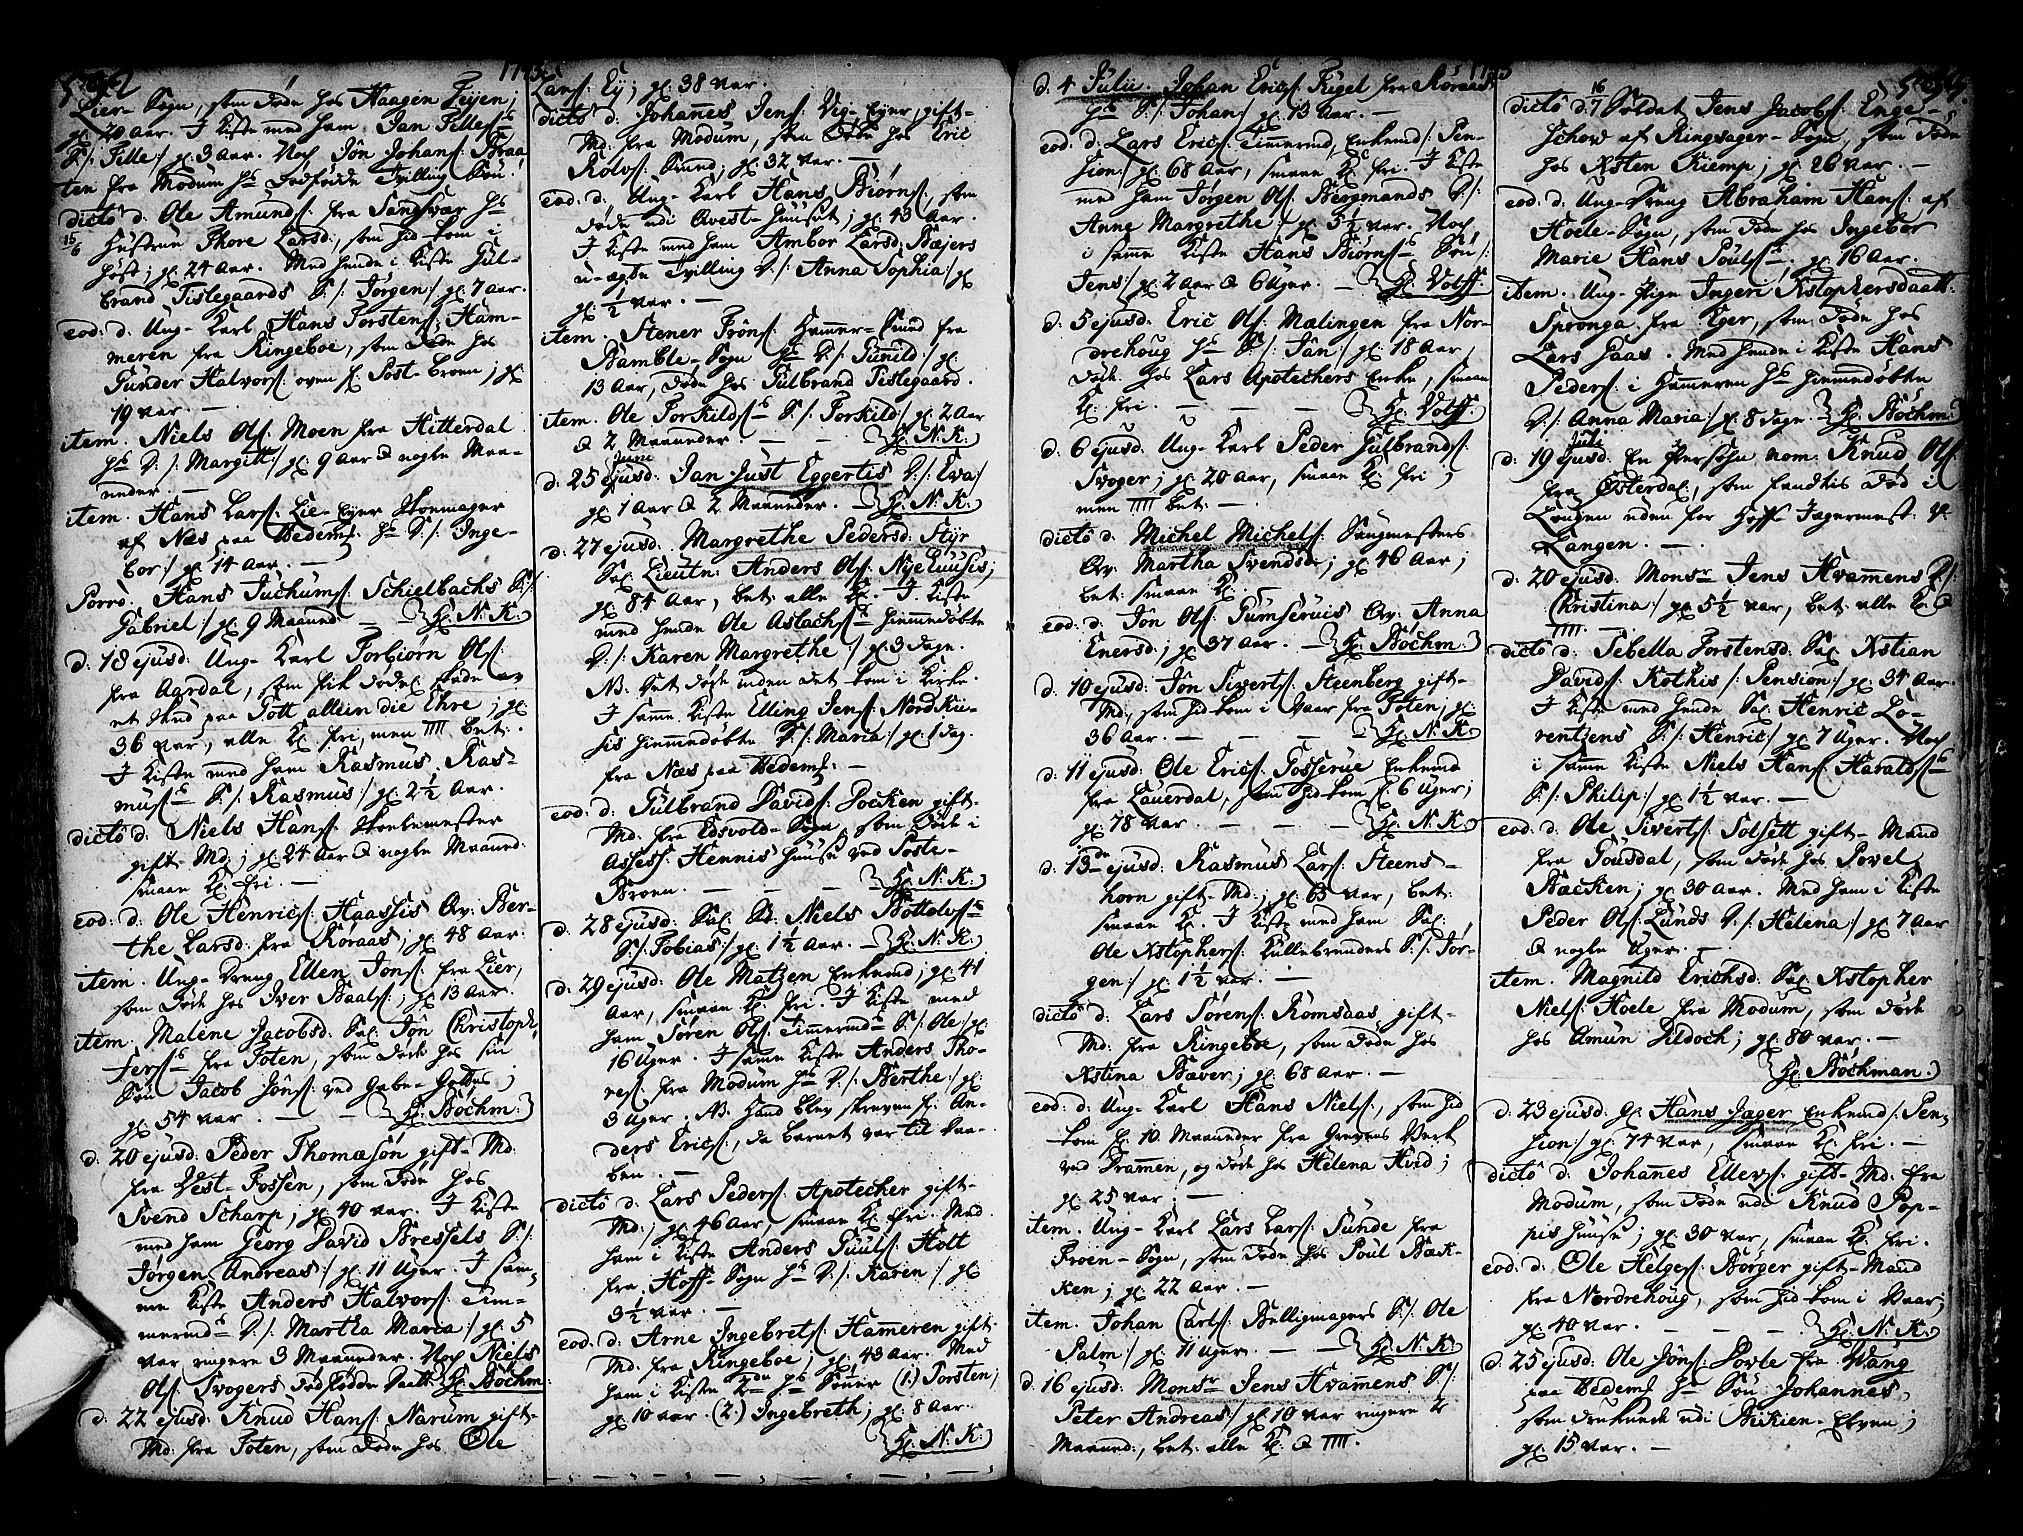 1743
Lier-Sogn, som døde hos Haagen Teijen;
gl. 20 Aar. I Kiste med ham Jan Tilles
S./: Tille:/ gl. 3 Aar. Noch Jôn Johans: Braa-
ten fra Modum hs dødfødde Tvilling Søn.
dicto d: Ole Amunds: fra Sandsvær hs
Hustrue Thore Larsd:, som hid kom i
Høst; gl. 24 Aar. Med hende i Kiste Gul-
brand Tislegaards S./: Jørgen:/ gl. 7 Aar.
eod: d: Ung-Karl Hans Torstens: Ham-
meren fra Ringeboe, som døde hos
Gunder Halvors: oven f. Post-broen; gl.
19 aar. —
item. Niels Ols: Moen fra Hitterdal
hs D:/: Margit:/ gl. 9 Aar & nogle Maa-
neder. —
item. Hans Lars: Lie-Ejer Skomager
af Næs paa Hedem: hs D:/: Inge-
bor:/ gl. 14 aar. —
Porro. Hans Juchums: Schielbachs S:/:
Gabriel:/ gl. 9 Maaned — Hr. N. K.
d: 18 ejusd: Ung-Karl Torbiörn Ols:
fra Aardal, som fik døde
et Skud paa Gott allein die Ehre; gl.
36 aar, alle Kl. fri, men IIII bet:
I Kiste med ham Rasmus Ras-
mus: S:/: Rasmus:/ gl. 2½ Aar.
dicto d: Niels Hans:
gift Md:; gl. 24 Aar & nogle Maaned:
smaae Kl. fri. —
eod: d: Ole Henrics: Haassis Qv: Ber-
the Larsd: fra Røraas; gl. 48 Aar.
item. Ung-Dreng Ellen Jons: fra Lier,
som døde hos Iver Baals:; gl. 13 Aar.
item. Malene Jacobsd: Sal: Jôn Christoph-
fers: fra Toten, som døde hos sin
Søn Jacob Jôns: ved
gl. 54 aar — — Hr. Bôchm:
d: 20 ejusd: Peder Thomæsøn gift-Md:
fra Vest-Fossen, som døde hos
Svend Scharp; gl. 40 aar. I Kiste
med ham Georg David Bressels S:/:
Jørgen Andreas:/ gl. 11 Uger. I sam-
me Kiste Anders Halvors: Tim-
mermds D:/: Martha Maria:/ gl. 5
aar ringere 3 Maaneder. Noch Niels
Ols: Svogers dødfødde Datt: Hr. Bôchm:
d: 22 ejusd: Knud Hans: Narum gift-
Md: fra Toten, som døde hos Ole
Lans: Ey; gl. 38 aar.
dicto d: Johanes Jens: Veg-Ejer, gift-
Md: fra Modum, som døde hos Eric
Rolvs: Smed; gl. 32 aar —
eod: d: Ung-Karl Hans Biörns:, som
døde udi Qvest-Huuset; gl. 43 Aar.
I Kiste med ham Ambor Larsd: Bæjers
u-ægte Tvilling D:/: Anna Sophia:/ gl.
gl. ½ aar. —
item. Stener Jrôns: Hamer-Smed fra
Bamble-Sogn hs D:/: Gunild:/ gl.
13 Aar, døde hos Gulbrand Tislegaard.
item. Ole Torkilds: S:/: Torkild:/ gl. 2 Aar
& 2 Maaneder. — — Hr. N. K.
Junii
d: 25 ejusd: Jan Just Eggertis D:/: Eva:/
gl. 1 Aar & 2 Maaneder. — Hr. N. K.
d: 27 ejusd: Margrethe Pedersd: Styr
Sal: Lieutn: Anders Ols: Nyeluusis;
gl. 84 Aar, bet: alle Kl. I Kiste
med hende Ole Aslachs: hiemmedøbte
D:/: Karen Margrethe:/ gl. 3 dage.
NB: det døde inden det kom i Kirke.
I samme Kiste Elling Jens: Nordkiu-
sis hiemmedøbte S:/: Maria:/ gl. 1 dag.
fra Næs paa Hedem: —
eod: d: Gulbrand Davids: Bocken gift-
Md: fra Edsvold-Sogn, som døde i
Assess: Hennis Huuse ved Foste-
Broen. — — — Hr. N. K.
d: 28 ejusd: Sal: Sr: Niels Bottolvs:
S:/: Tobias:/ gl. 1½ Aar. — Hr. N. K.
d: 29 ejusd: Ole Matzen Enkemd; gl. 41
Aar, smaae Kl. fri. I Kiste med
ham Sôren Ols: Timmermds S:/: Ole:/ gl.
16 Uger. I samme Kiste Anders Tho-
res: fra Modum hs D:/: Berthe:/ gl.
3 Uger. NB. Hand blev skreven for An-
ders Erics:, da barnet var til Daa-
ben. —
dicto d: Lars Peders: Apotecher gift-
Md:; gl. 46 Aar, smaae Kl. fri. Med
ham i Kiste Anders Guuls: Holt
fra Hoff-Sogn hs D:/: Karen:/ gl.
3½ aar. —
eod: d: Arne Ingebrets: Hameren gift-
Md: fra Ringeboe; gl. 43 Aar. Med
ham i Kiste 2de hs Sönner (1.) Torsten;
gl. 10 aar. (2.) Ingebreth; gl. 8 Aar.
Hr. N. K.
1743
d. 4 Julii. Johan Erics: Rigel fra Røraas
hs S:/: Johan:/ gl. 13 Aar. —
eod: d: Lars Erics: Timermd, Enkemd:/: Pen-
sion:/ gl. 68 Aar, smaae Kl. fri. I Kiste
med ham Jørgen Ols: Bergmands D:/:
Anne Margrethe:/ gl. 5½ aar. Noch
i samme Kiste Hans Biörns: Søn/:
Jens:/ gl. 2 Aar & 6 Uger. — Hr. Volff.
d: 5 ejusd: Eric Ols: Mælingen fra Nor-
drehoug hs S:/: Jan:/ gl. 18 Aar,
døde hos Lars Apotechers Enke, smaae
Kl. fri. — — — Hr. Volff:
d: 6 ejusd: Ung-Karl Peder Gulbrands:
Svoger; gl. 20 Aar, smaae Kl. fri,
men IIII bet: —
dicto d: Michel Michels: Sangmesters
Qv: Martha Svendsd:; gl. 46 Aar;
bet: smaae Kl. —
eod: d: Jôn Ols: Gumseruis Qv: Anna
Enersd:; gl. 37 Aar. — Hr. Bôchm:
d: 10 ejusd: Jôn Siverts: Steenberg gift-
Md:, som hid kom i Vaar fra Toten; gl.
36 Aar. — — — Hr. N. K.
d: 11 ejusd: Ole Erics: Fosserue Enkemd
fra Laurdal, som hid kom f. 6 Uger;
gl. 78 aar. — — — Hr. N. K.
d: 13de ejusd: Rasmus Lars: Steens-
horn gift-Md:; gl. 63 aar, bet:
smaae Kl. I Kiste med ham Sal:
Ole Xstophers: Kullebrenders S:/: Jør-
gen:/ gl. 1½ aar. —
dicto d: Lars Sôrens: Romsdas gift-
Md: fra Ringeboe, som døde hos
Xstina Bæver; gl. 68 Aar. —
eod: d: Ung-Karl Hans Niels:, som hid
kom f. 10. Maaneder fra Grevens Verk
ved Drammen, og døde hos Helena Hvid;
gl. 25 aar; —
item. Ung-Karl Lars Lars: Sunde fra
Froen-Sogn, som døde hos Poul Bak-
ken; gl. 22 Aar. —
item. Johan Carls: Bælligmagers S:/: Ole
Palm:/ gl. 11 Uger. — — Hr. N. K.
d: 16 ejusd: Monsr Jens Hvamens S:/:
Peter Andreas:/ gl. 10 aar ringere 2
Maaned:, bet: alle Kl. & IIII.
16
dicto d: 7 Soldat Jens Jacobs: Enge-
Schow af Ringsager-Sogn, som døde
hos Xsten Kiemp; gl. 26 aar. —
eod: d: Ung-Dreng Abraham Hans: af
Hoele-Sogn, som døde hos Ingebor
Marie Hans Pouls: gl. 16 Aar.
item. Ung-Pige Ingeri Xstophersdaatt:
Spronga fra Eger, som døde hos
Lars Haas. Med hende i Kiste Hans
Peders: i Hameren hs hiemmedøbte
D:/: Anna Maria:/ gl. 8 dage. Hr. Bôchm:
Julii
d: 19 ejusd: En Persohn nom: Knud Ols:
fra Østerdal, som fandtis død i
Lougen uden for Hoff-Jægermest: V:
Langen. —
d: 20 ejusd: Monsr Jens Hvamens D:/:
Christina:/ gl. 5½ aar, bet: alle Kl. &
IIII. —
dicto d: Sebella Torstensd: Sal: Xstian
Davids: Kothis /: Pension:/ gl. 34 Aar.
I Kiste med hende Sal: Henric Lo-
rentzens S:/: Henric:/ gl. 7 Uger. Noch
i samme Kiste Niels Hans: Haralds:
S:/: Philip:/ gl. 1½ aar. —
eod: d: Ole Siverts: Solsett gift-Mand
fra Gousdal, som døde hos Povel
Backen; gl. 30 Aar. Med ham i Kiste
Peder Ols: Lunds D:/: Helena:/ gl. 7 Aar
& nogle Uger. —
item. Magnild Erichsd: Sal: Xstopher
Niels: Hoele fra Modum, som døde
hos Amun Sildoch; gl. 80 aar. —
Hr. Bôchman.
d: 23 ejusd: Gl. Hans Jæger Enkemd /: Pen-
sion:/ gl. 74 aar, smaae Kl. fri. —
dicto d: Johanes Ellevs: gift-Md: fra
Modum, som døde udi Knud Pop-
pis Huuse; gl. 30 aar, smaae Kl. fri.
eod: d: Ole Helges: Börger gift-Mand
fra Nordrehoug, som hid kom i Vaar;
gl. 40 aar. — — — Hr. N. K.
d: 25 ejusd: Ole Jôns: Dovle fra Wang
paa Hedem: hs Søn Johannes,
som druknede udi Bikien-Elven;
gl. 15 aar. —